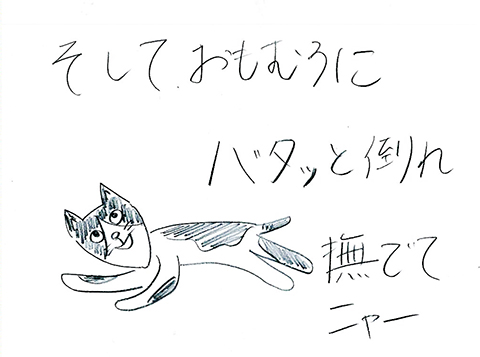 そして、おもむろに
バタッと倒れ
撫でて
ニャー